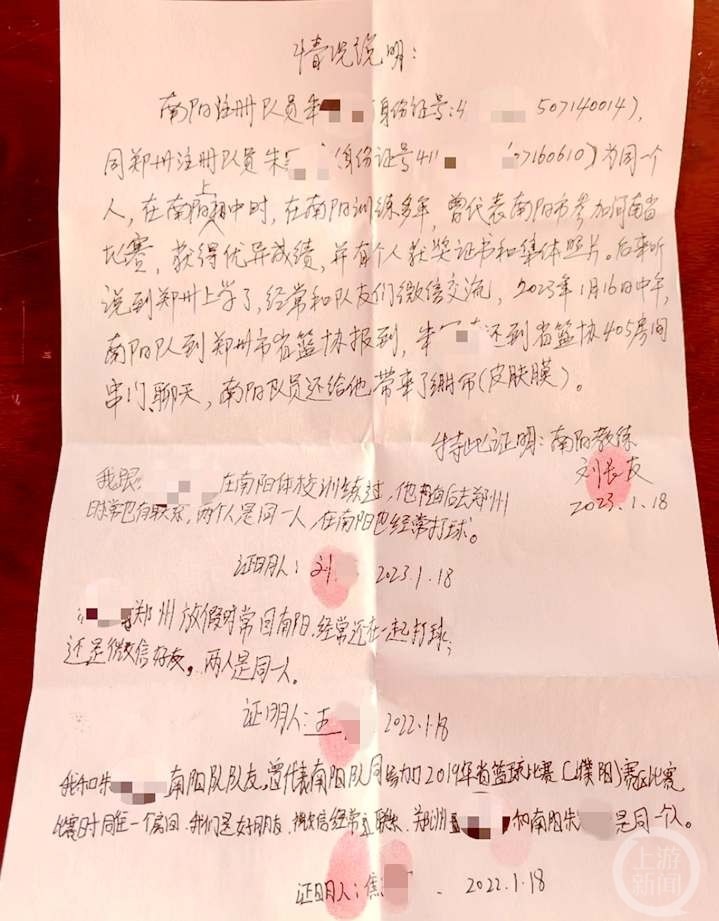 情况说明：
南阳注册队员朱 身份证号：4 50714001 4)，
同郑州注册队员朱 (身份证号411 07160610)为同一个
人，在南阳上初中时，在南阳训练多年，曾代表南阳市参加河南省
比赛，获得优异成绩，并有个人获奖证书和集体照片。后来听
说到郑州上学了，经常和队友们微信交流，2023年1月16日中午，
南阳队到郑州市省篮协报到，朱 还到省篮协405房间
串门聊天，南阳队员还给他带来了绷带(皮肤膜)。
特此证明：南阳教练
刘长友
2023.1.18
我跟 在南阳体校训练过，他 后去郑州
时常也有联系，两个人是同一人，在南阳也经常打球。
证明人：刘 2023.1.18
郑州放假时常回南阳，经常还在一起打球，
还是微信好友，两人是同一人。
证明人：王 2022.1.18
我和朱 南阳队队友，曾代表南阳队同参加2019年省篮球比赛(濮阳)赛区比赛
比赛时同住一个房间，我们是好朋友，微信经常互联系，郑州 和南阳朱 是同一个人。
证明人：焦 2022.1.18
上游新闻